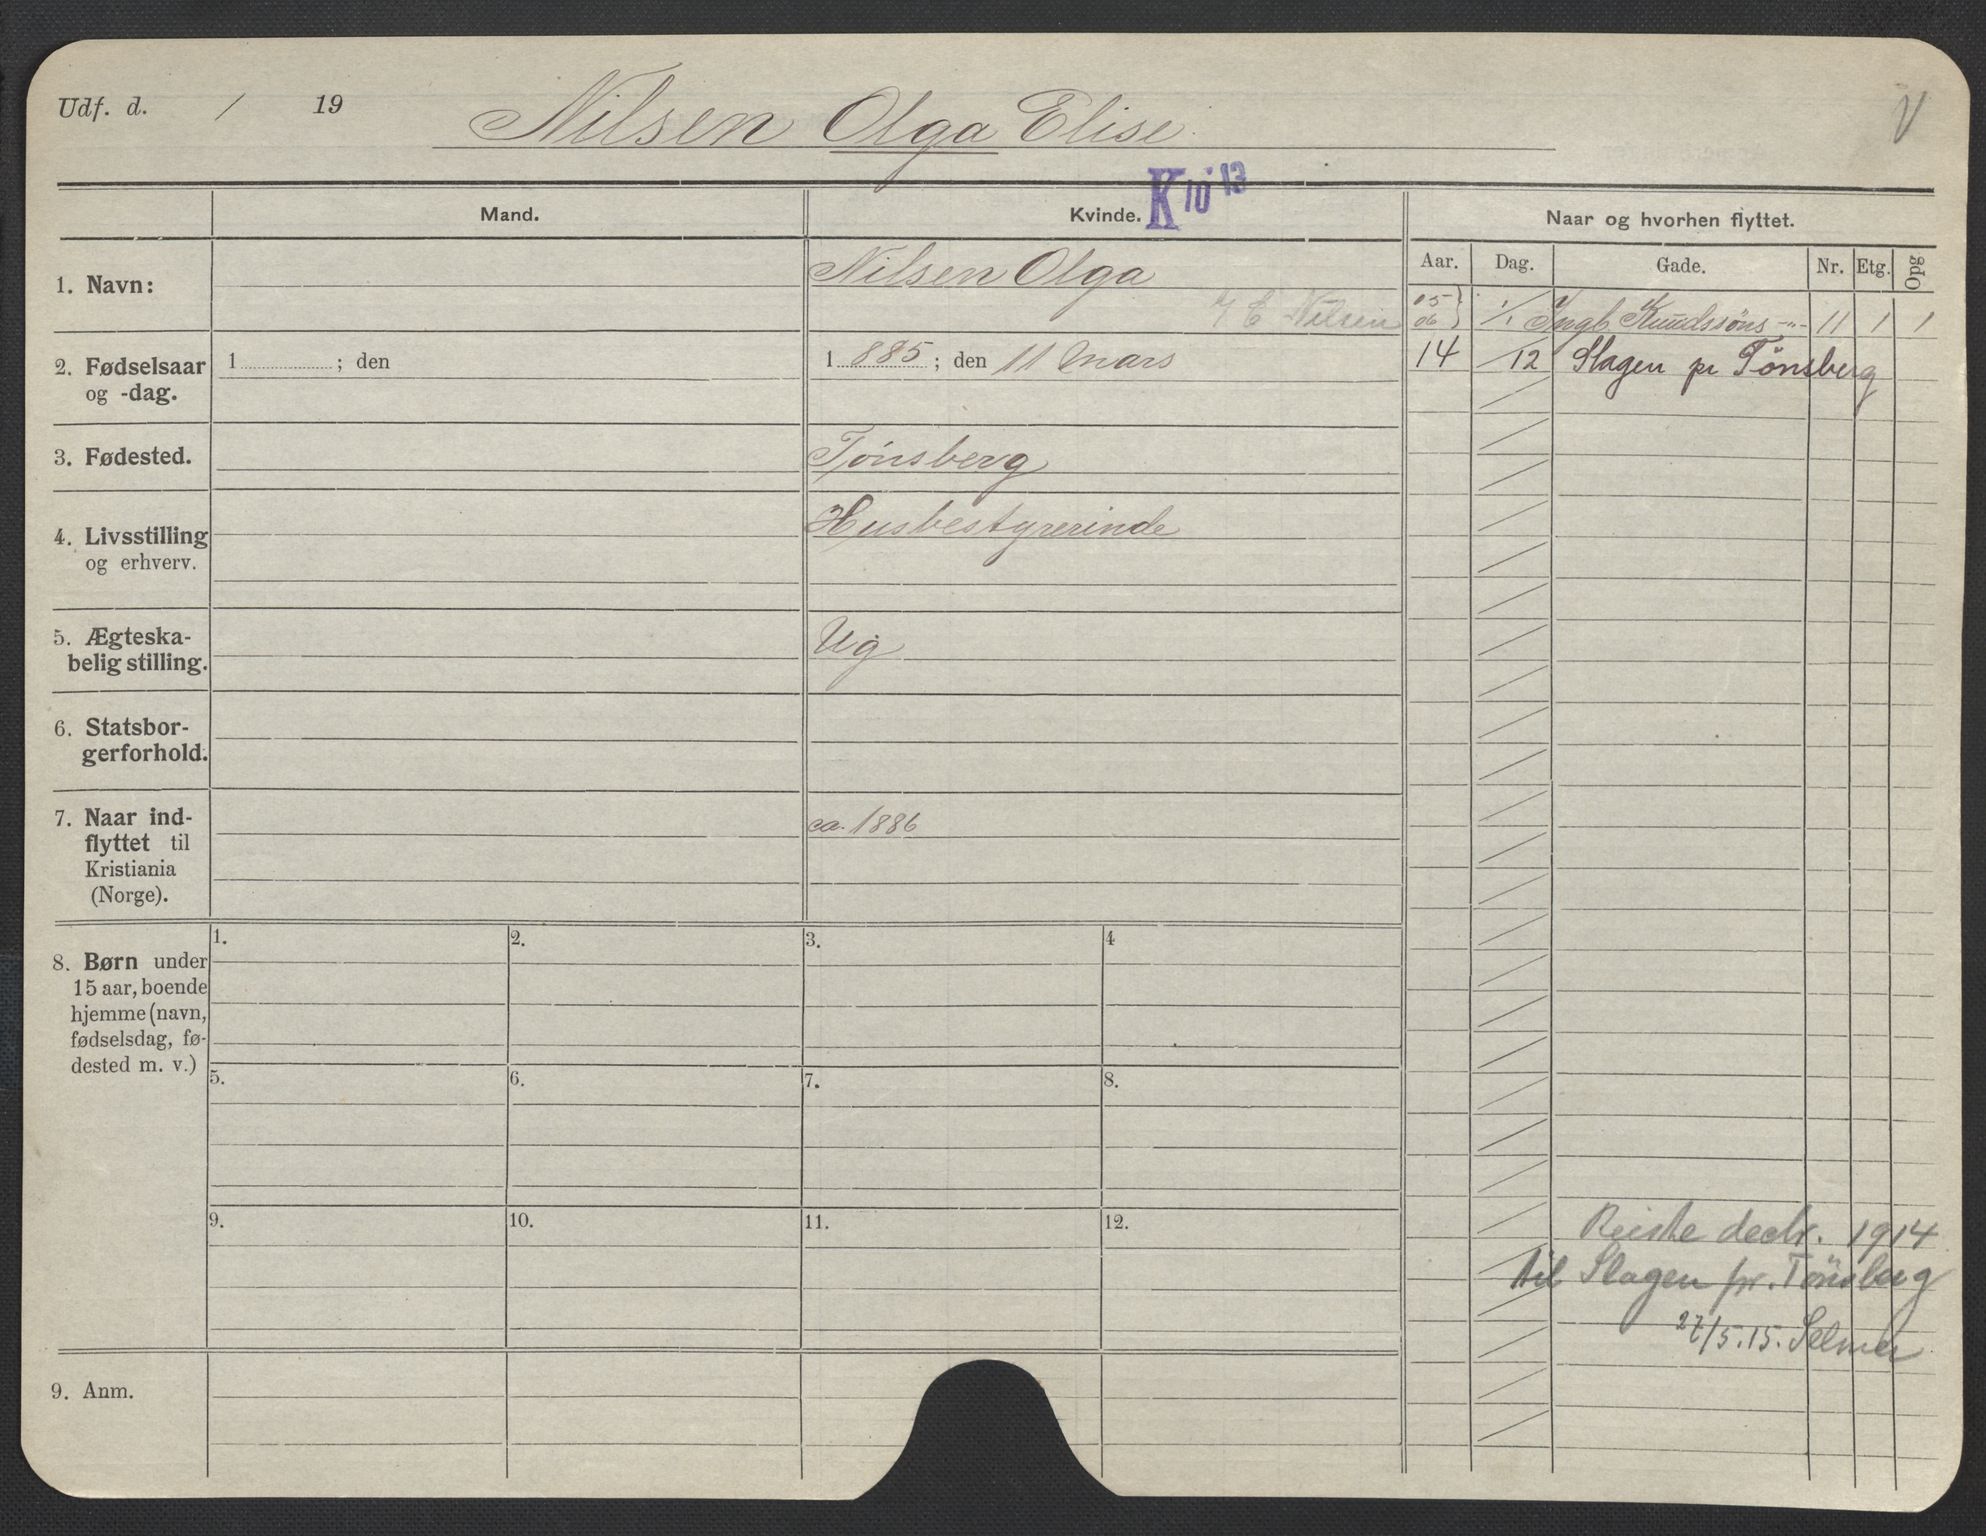 Udf. d. / 19
Nilsen Olga Elise
V
K 10 13
Mand.
Kvinde.
Naar og hvorhen flyttet.
Aar. Dag. Gade. Nr. Etg. Opg
1. Navn:
Nilsen Olga
E Nilsen
05 } 1/1 Ingb. Knudssöns -"- 11 1 1
06
2. Fødselsaar
og -dag.
1 ; den
1 885 ; den 11 Mars
14 /12 Slagen pr Tönsberg
3. Fødested.
Tönsberg
4. Livsstilling
og erhverv.
Husbestyrerinde
5. Ægteska-
belig stilling.
Ug
6. Statsbor-
gerforhold.
7. Naar ind-
flyttet til
Kristiania
(Norge).
ca. 1886
8. Børn under
15 aar, boende
hjemme (navn,
fødselsdag, fø-
dested m. v.)
1. 2. 3. 4
5. 6. 7. 8.
9. 10. 11. 12.
Reiste decbr. 1914
til Slagen pr. Tönsberg
27/5.15. Selmer
9. Anm.